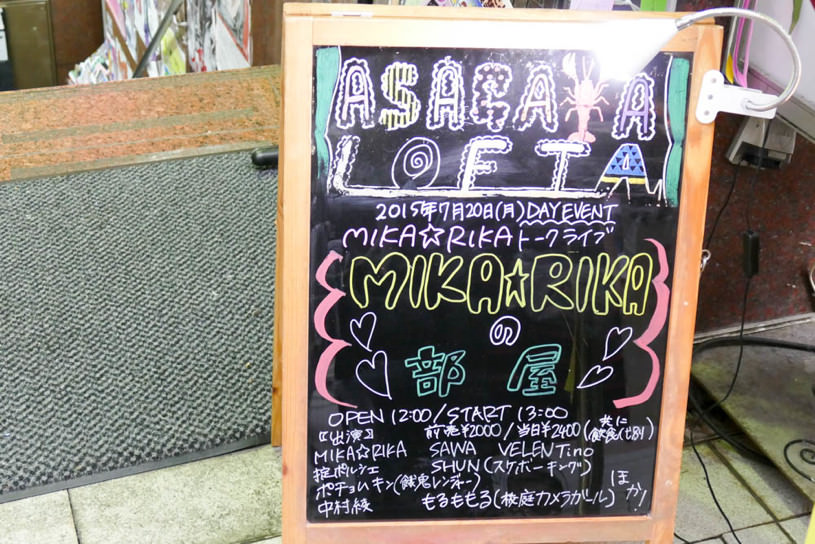 ASAGAYA
LOFTA
2015年7月20日(月)DAY EVENT
MIKA☆RIKAトークライブ
MIKA★RIKA
の
部屋
OPEN 12:00/START 13:00
〖出演〗 前売¥2000/当日¥2400(共に飲食代別)
MIKA☆RIKA SAWA VELENTino
掟ポルシェ SHUN(スケボーキング)
ポチョムキン(餓鬼レンジャー)
中村綾 もるももる(校庭カメラガール) ほか!